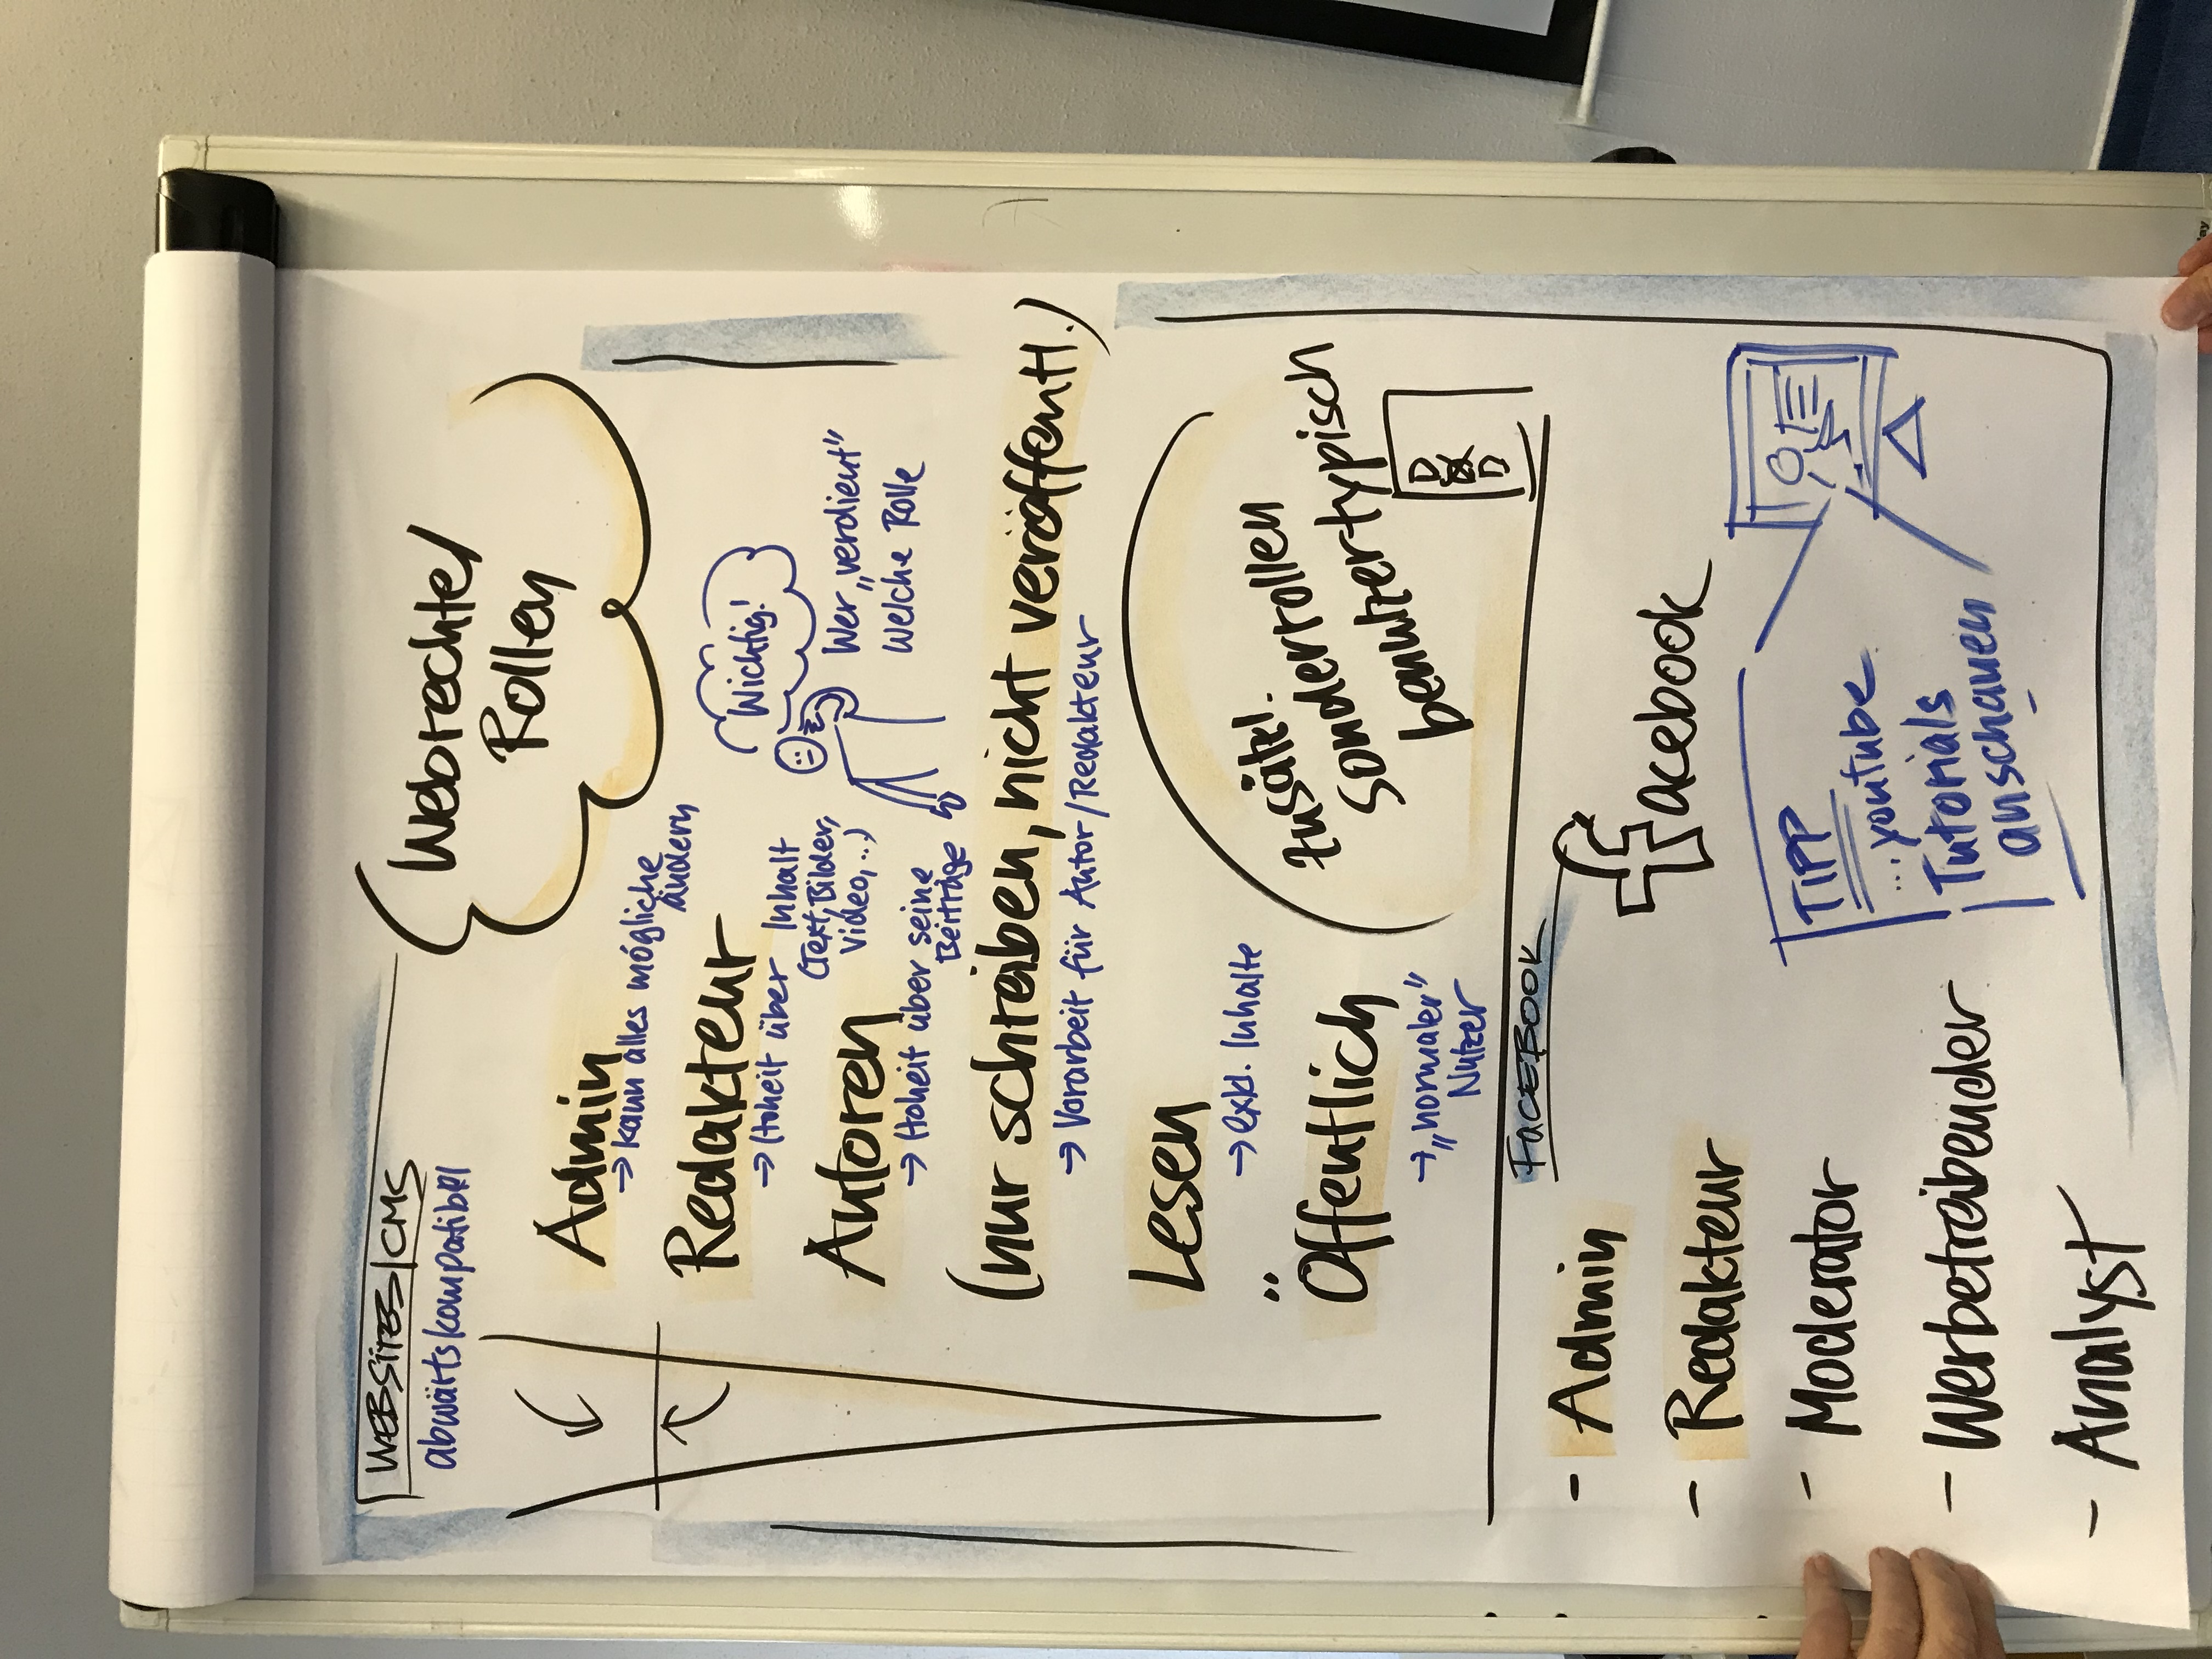 WEBSITES/CMS
abwärtskompatibel
Webrechte/
Rollen
Admin
→ kann alles mögliche
ändern
Redakteur
→ Hoheit über Inhalt
(Text, Bilder,
Video,...)
Wichtig!
Wer „verdient"
welche Rolle
Autoren
→ Hoheit über seine
Beiträge
(nur schreiben, nicht veröffentl.)
→ Vorarbeit für Autor/Redakteur
Lesen
→ exkl. Inhalte
Öffentlich
→ „normaler"
Nutzer
zusätzl.
Sonderrollen
benutzertypisch
FACEBOOK
facebook
- Admin
- Redakteur
- Moderator
- Werbetreibender
- Analyst
TIPP
...youtube
Tutorials
anschauen